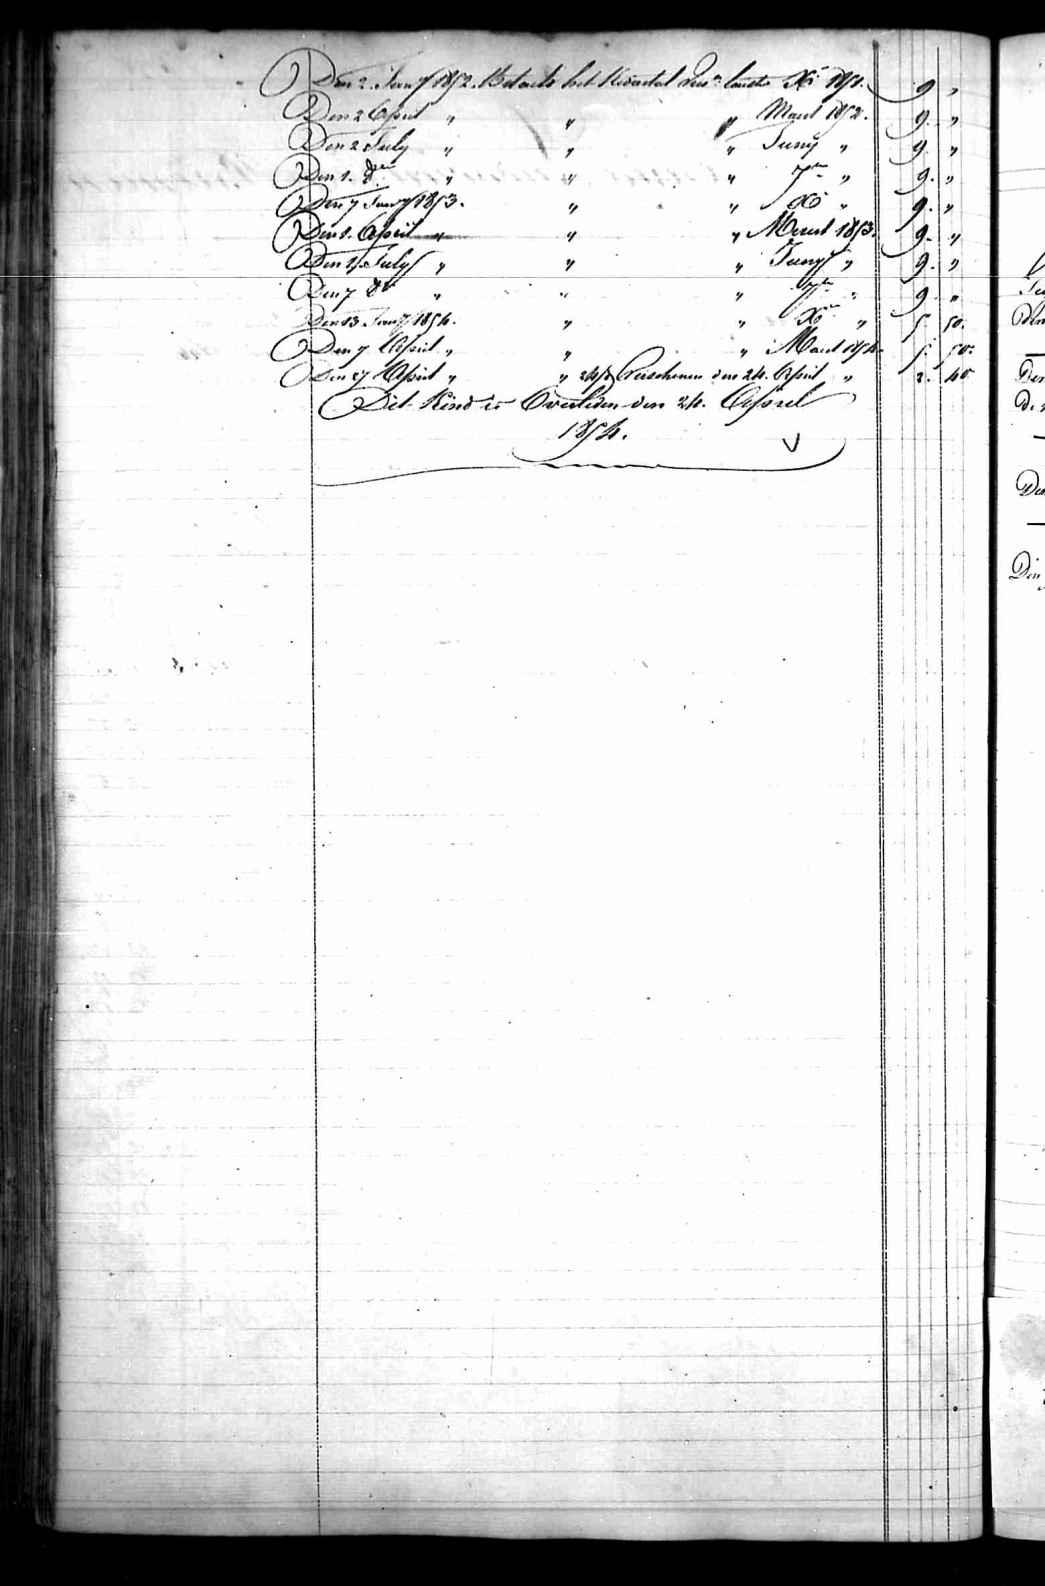 Den 2 Jany 1852. Betaald het Kwartaal ver: laatste Xb 1851. 9 "
Den 2 April " " " Maart 1852. 9. "
Den 2 July " " " Juny " 9. "
Den 1. 8br " " " 7br " 9. "
Den 7 Jany 1853. " " Xb " 9. "
Den 1. April " " " Maart 1853. 9. "
Den 1. July " " " Juny " 9. "
Den 7 8br " " " 7br " 9. "
Den 13 Jany 1854. " " Xbr " 5. 50.
Den 7 April " " " Maart 1854. 5. 50.
Den 27 April " " Verschenen den 24. April " 2. 40
Dit Kind is Overleden den 24. April
1854.